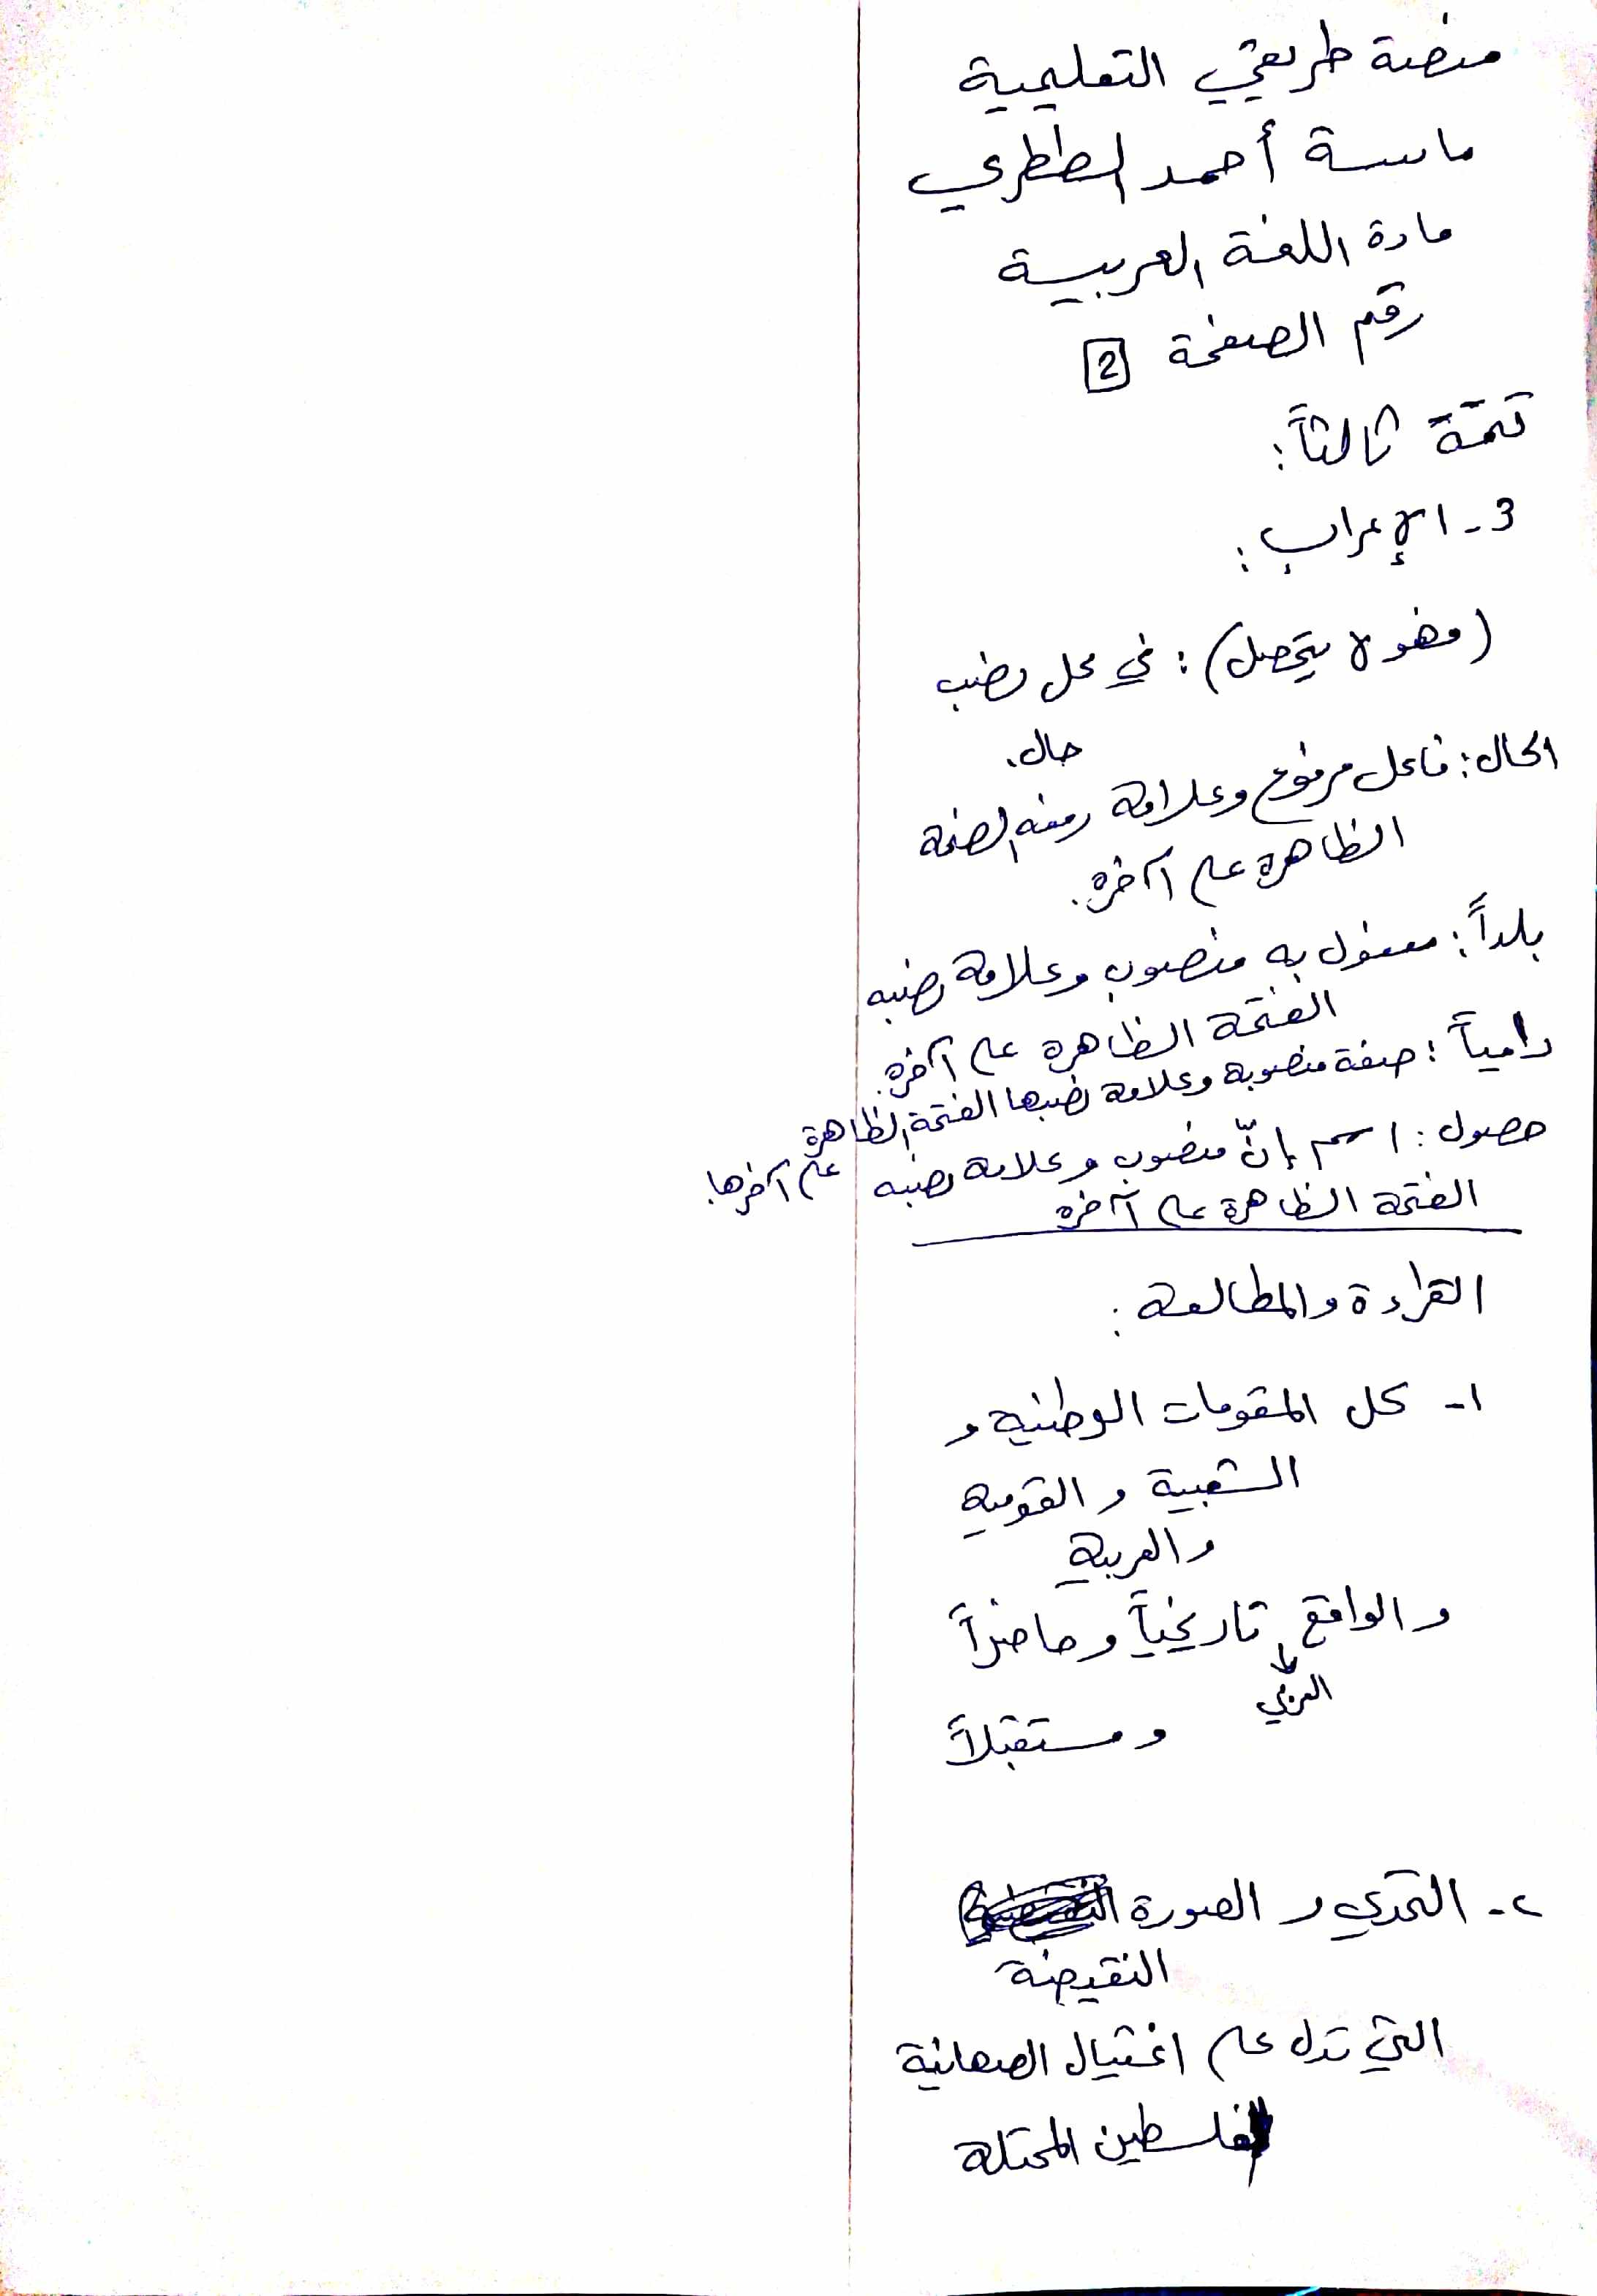 منصة طريقي التعليمية
ماسة أحمد الططري
مادة اللغة العربية
رقم الصفحة 2
تتمّة ثالثاً:
3- الإعراب:
(وهو لا يتحصل): في محل نصب
حال.
الحال: فاعل مرفوع وعلامة رفعه الضمة
الظاهرة على آخره.
بلداً: مفعول به منصوب وعلامة نصبه
الفتحة الظاهرة على آخره.
دامياً: صفة منصوبة وعلامة نصبها الفتحة الظاهرة
على آخرها.
حصول: اسم إنّ منصوب وعلامة نصبه
الفتحة الظاهرة على آخره
القراءة والمطالعة:
١- كل المقومات الوطنية و
الشعبية و القومية
و العربية
و الواقع تاريخياً و حاضراً
العربي
و مستقبلاً
٢- التحدي و الصورة
النقيضة
التي تدل على اغتيال الصهاينة
لفلسطين المحتلة